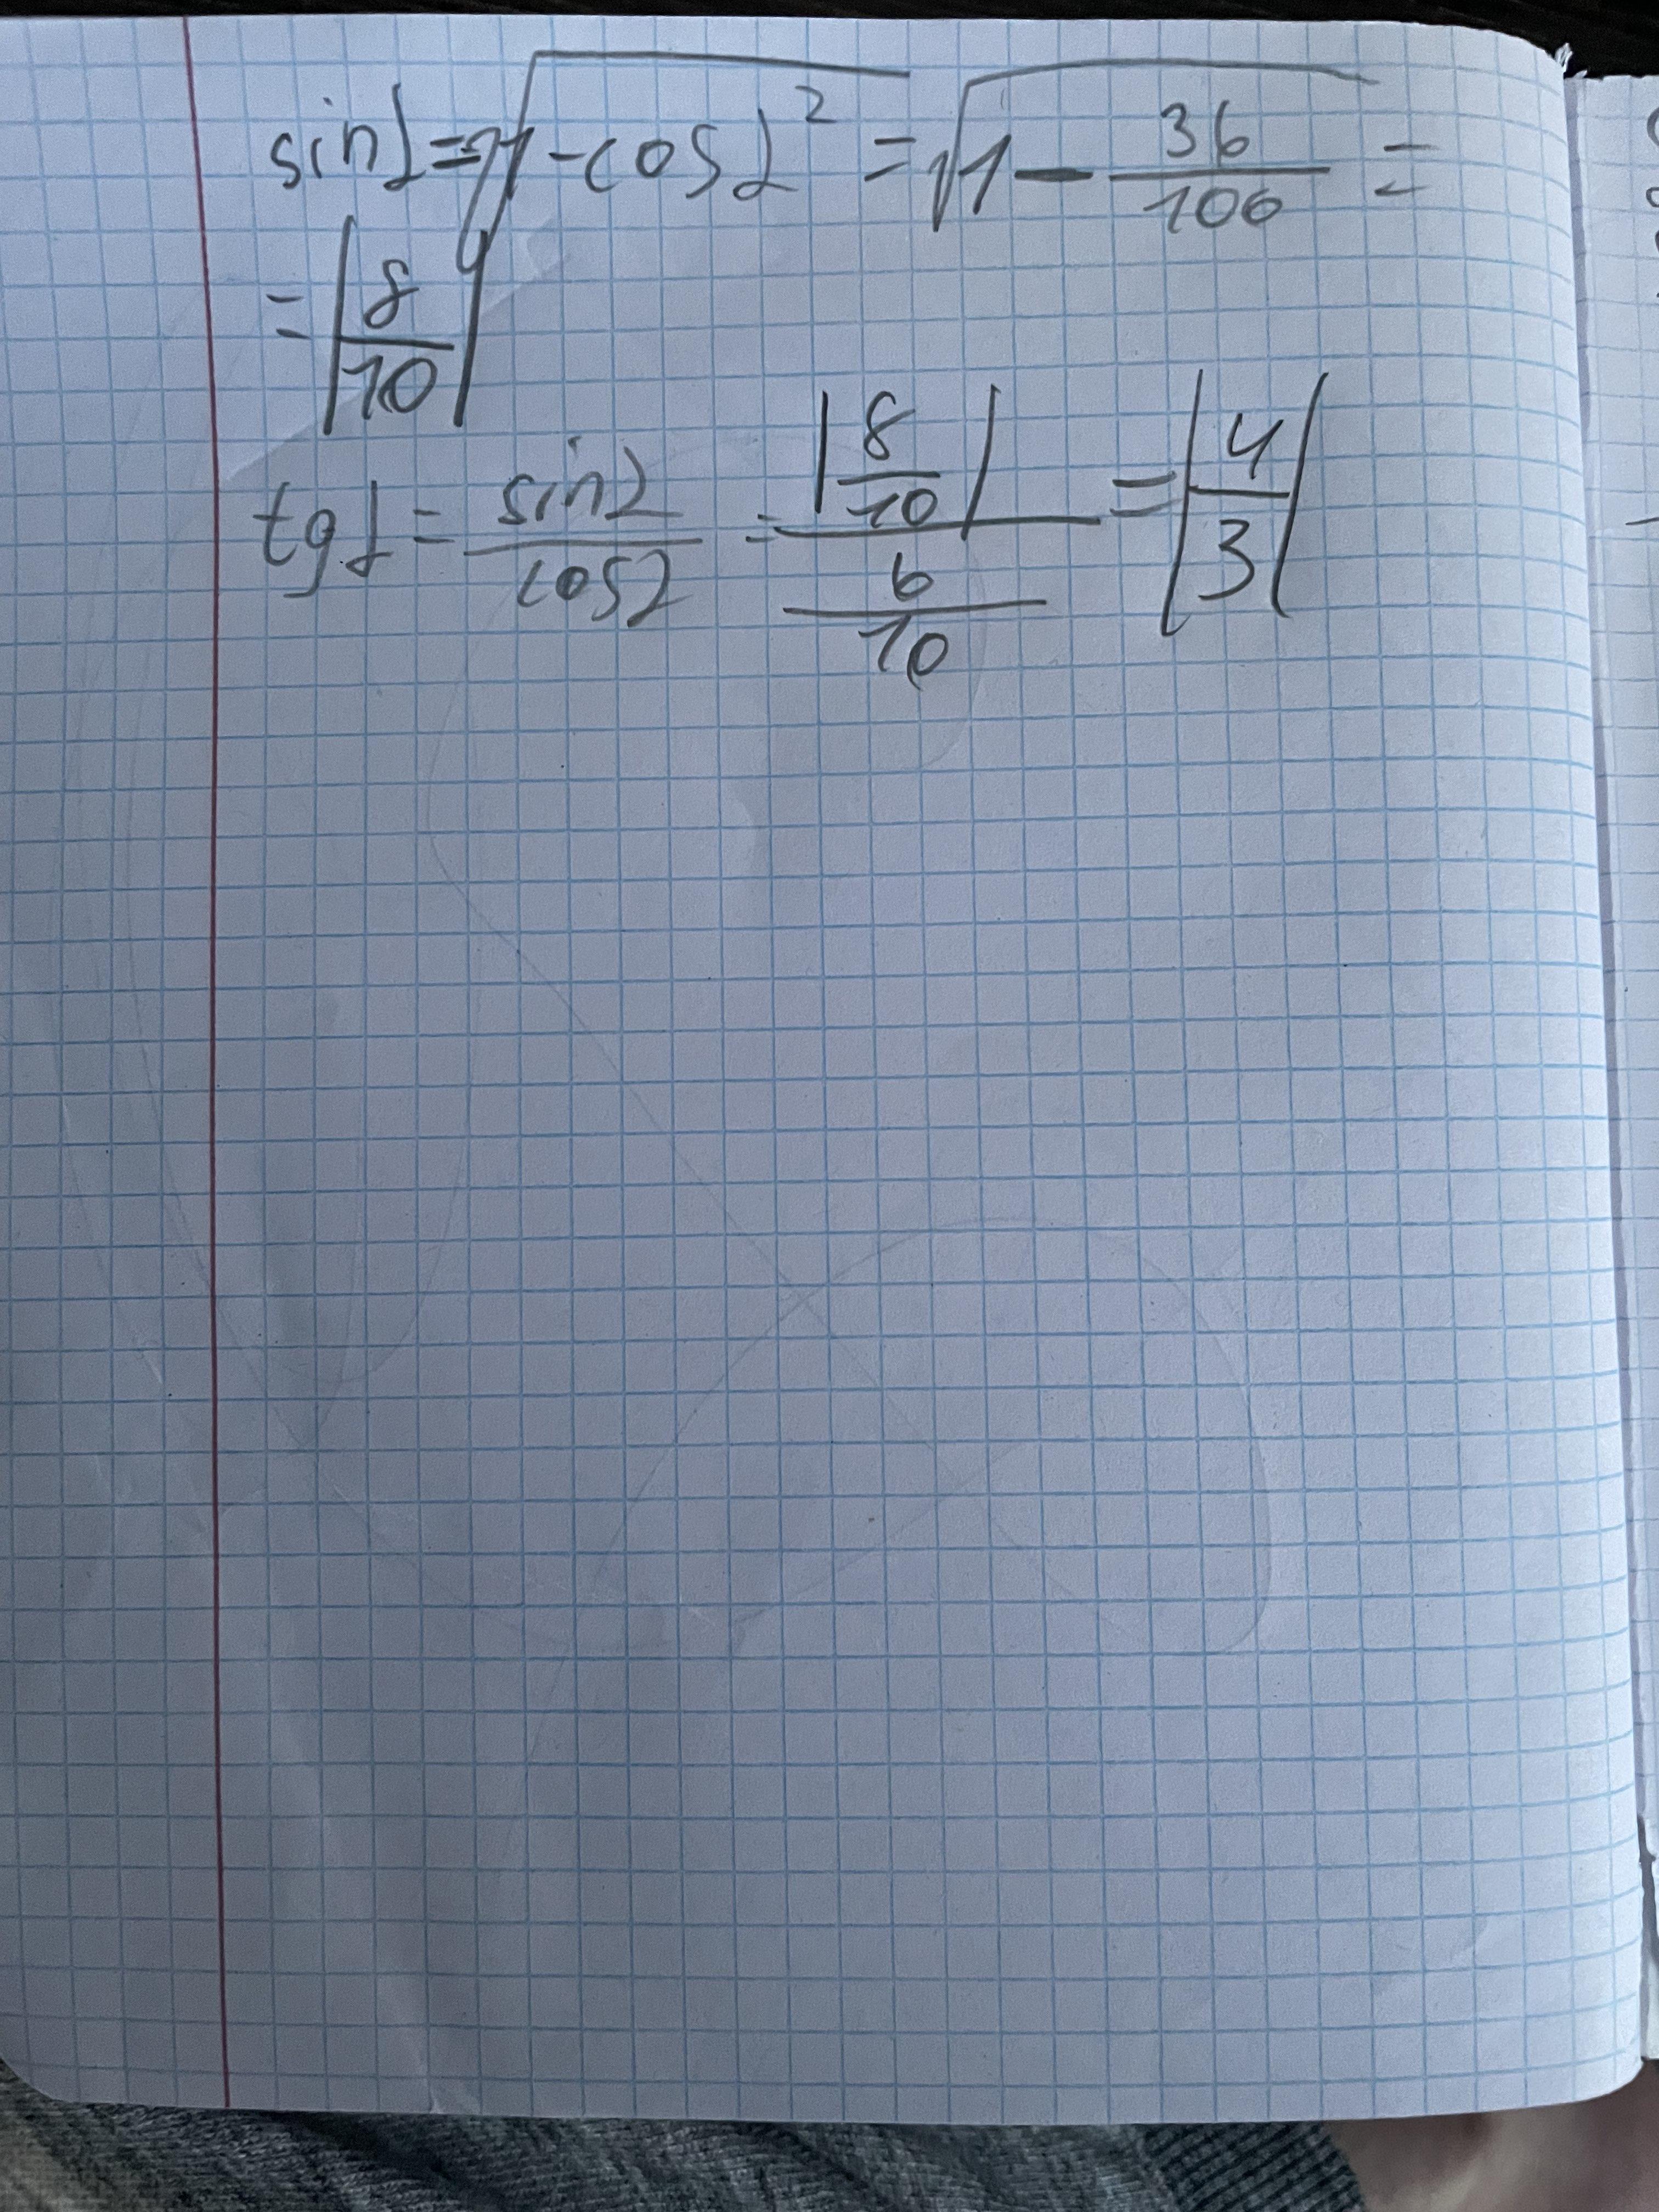 sinα = √1 - cosα² = √1 - 36/100 =
= |8/10|
tgα = sinα/cosα = |8/10|/6/10 = |4/3|